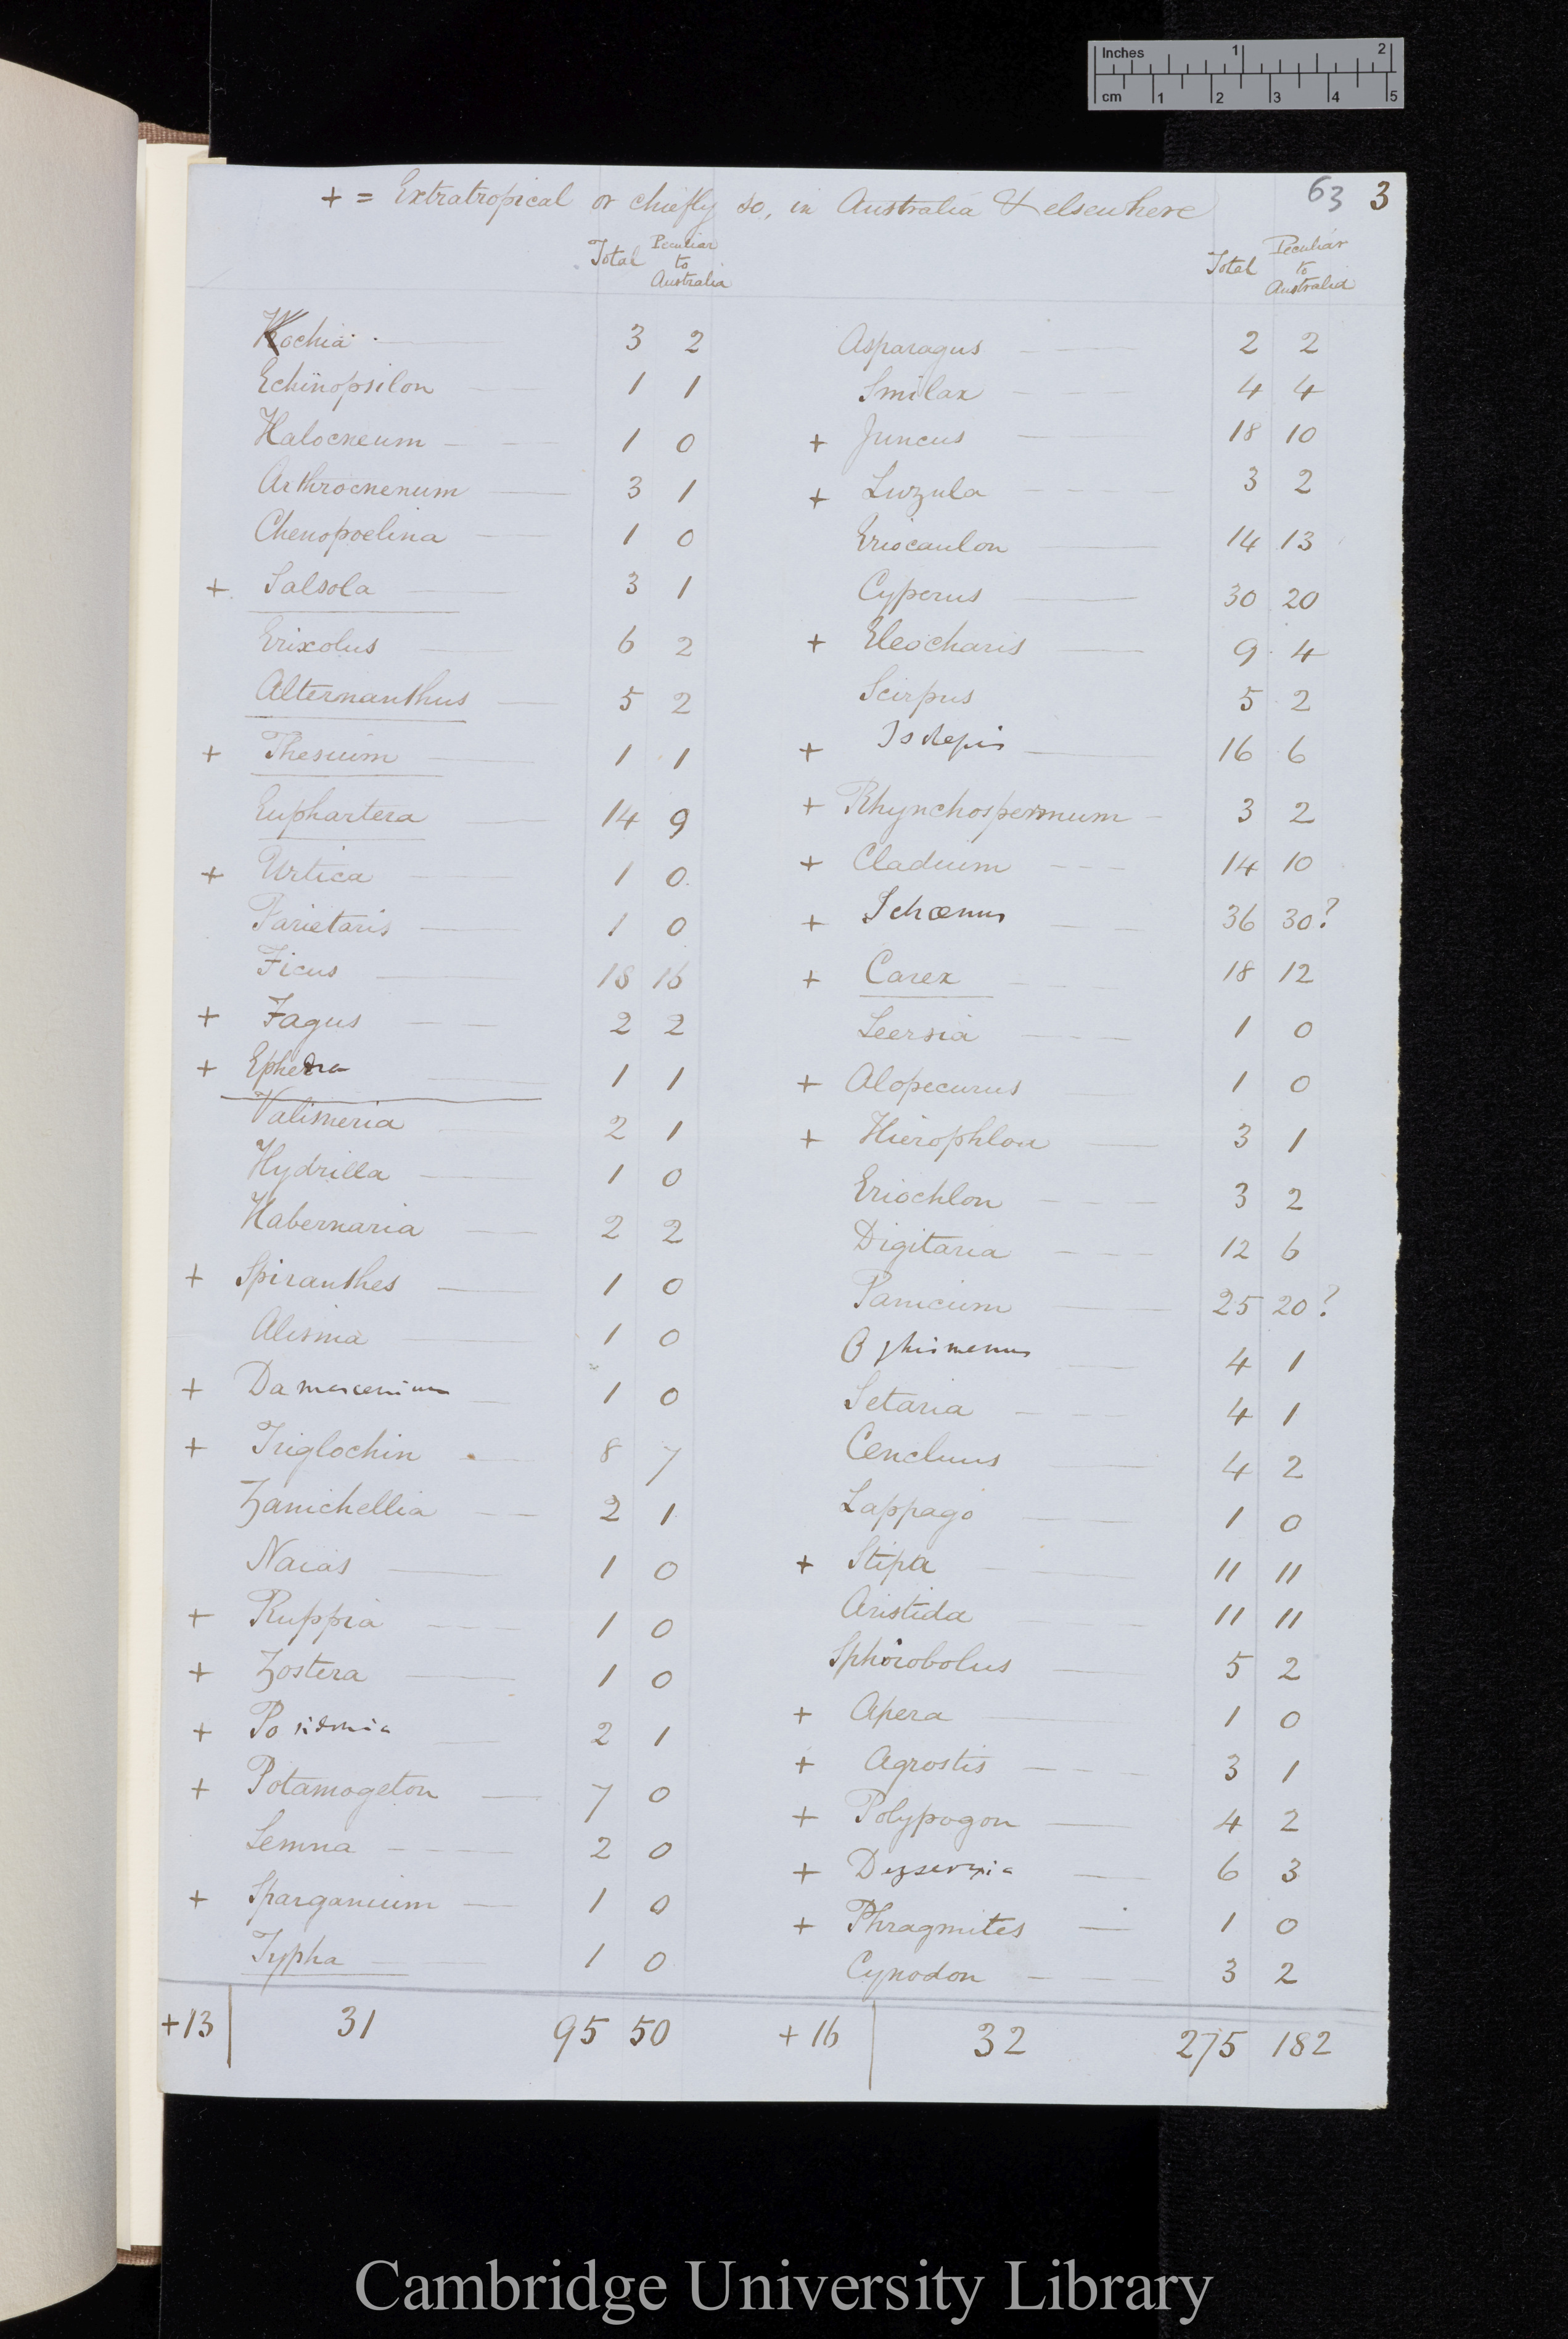 Inches 1 2
cm 1 2 3 4 5
63 3
+ = Extratropical or chiefly so, in Australia & elsewhere
Total Peculiar to Australia
Kochia 3 2
Echinopsilon 1 1
Halocneum 1 0
Arthrocnenum 3 1
Chenopoelina 1 0
+ Salsola 3 1
Erixolus 6 2
Alternanthus 5 2
+ Thesium 1 1
Euphartera 14 9
+ Urtica 1 0
Parietaris 1 0
Ficus 18 16
+ Fagus 2 2
+ Ephedra 1 1
Valisneria 2 1
Hydrilla 1 0
Habernaria 2 2
+ Spiranthes 1 0
Alisma 1 0
+ Damascenium 1 0
+ Triglochin 8 7
Zanichellia 2 1
Naias 1 0
+ Ruppia 1 0
+ Zostera 1 0
+ Posidonia 2 1
+ Potamogeton 7 0
Lemna 2 0
+ Sparganium 1 0
Typha 1 0
+13 31 95 50
Total Peculiar to Australia
Asparagus 2 2
Smilax 4 4
+ Juncus 18 10
+ Luzula 3 2
Eriocaulon 14 13
Cyperus 30 20
+ Eleocharis 9 4
Scirpus 5 2
+ Isolepis 16 6
+ Rhynchospermum 3 2
+ Cladium 14 10
+ Schœnus 36 30?
+ Carex 18 12
Leersia 1 0
+ Alopecurus 1 0
+ Hierophloa 3 1
Eriochlon 3 2
Digitaria 12 6
Panicum 25 20?
Oplismenus 4 1
Setaria 4 1
Cenchrus 4 2
Lappago 1 0
+ Stipa 11 11
Aristida 11 11
Sphoiobolus 5 2
+ Apera 1 0
+ Agrostis 3 1
+ Polypogon 4 2
+ Deyeuxia 6 3
+ Phragmites 1 0
Cynodon 3 2
+16 32 275 182
Cambridge University Library